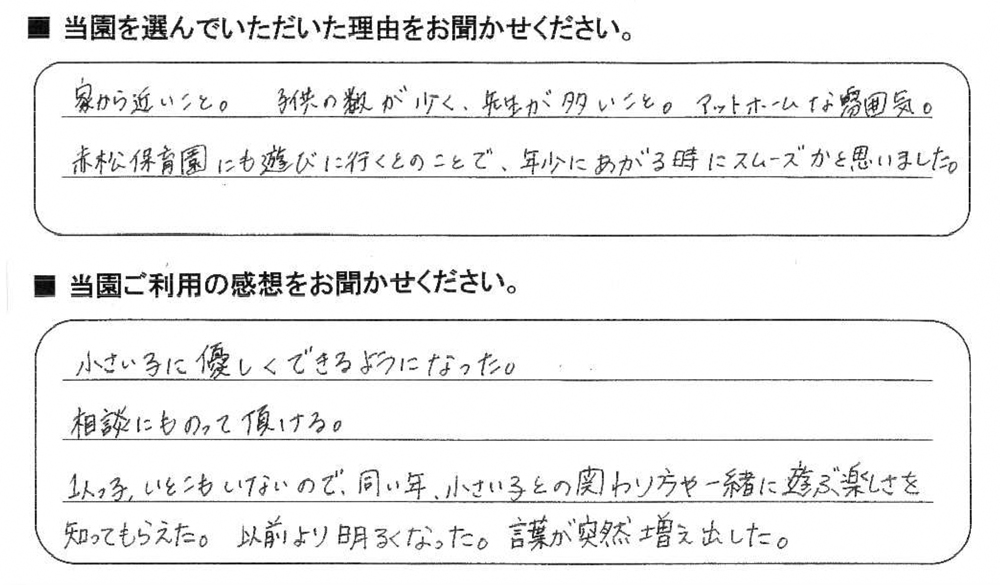 ■ 当園を選んでいただいた理由をお聞かせください。
家から近いこと。 子供の数が少く、先生が多いこと。 アットホームな雰囲気。
赤松保育園にも遊びに行くとのことで、年少にあがる時にスムーズかと思いました。
■ 当園ご利用の感想をお聞かせください。
小さい子に優しくできるようになった。
相談にものって頂ける。
1人っ子、いとこもいないので、同い年、小さい子との関わり方や一緒に遊ぶ楽しさを
知ってもらえた。 以前より明るくなった。言葉が突然増え出した。